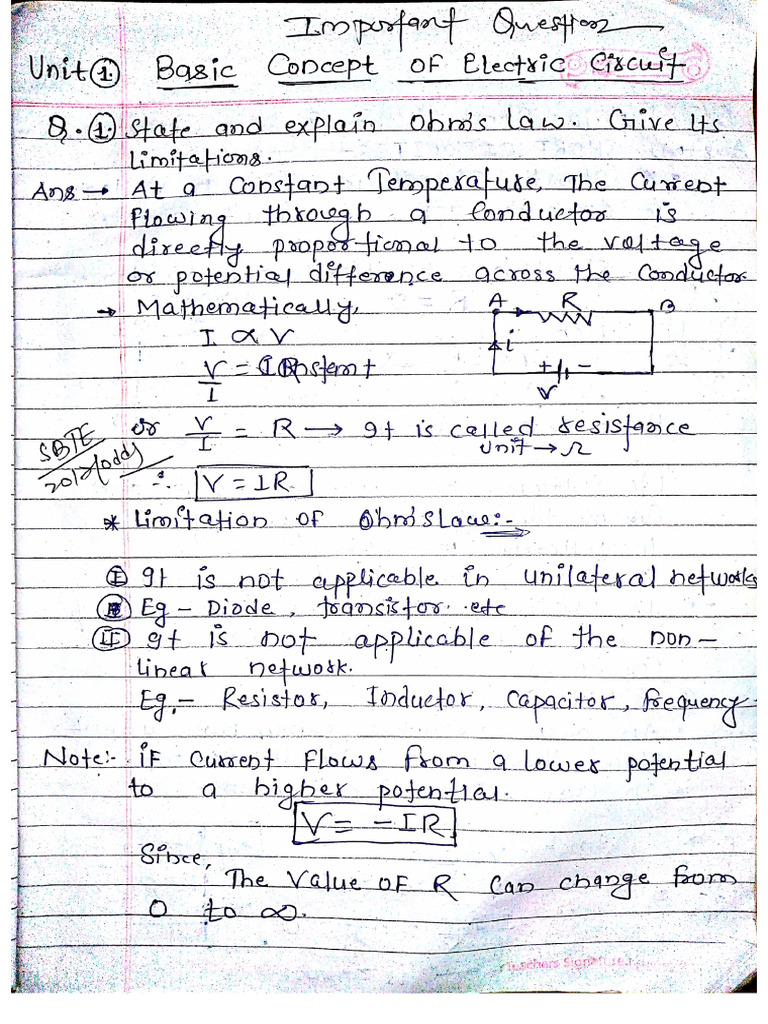 Important Question
Unit ① Basic Concept of Electric Circuit
Q.① State and explain Ohm's law. Give Its
limitations.
Ans → At a Constant Temperature, The Current
flowing through a Conductor is
directly proportional to the voltage
or potential difference across the Conductor
→ Mathematically,
A R B
I ∝ V
i
V/I = Constant
+ -
V
or V/I = R → It is called resistance
unit → Ω
SBTE
∴ V = IR
* Limitation of Ohm's Law:-
Ⓘ It is not applicable in unilateral networks
Eg - Diode, transistor. etc
Ⓘ It is not applicable of the non-
linear network.
Eg,- Resistor, Inductor, Capacitor, frequency
Note:- if Current Flows from a lower potential
to a higher potential.
V = -IR
Since,
The Value of R Can Change from
0 to ∞.